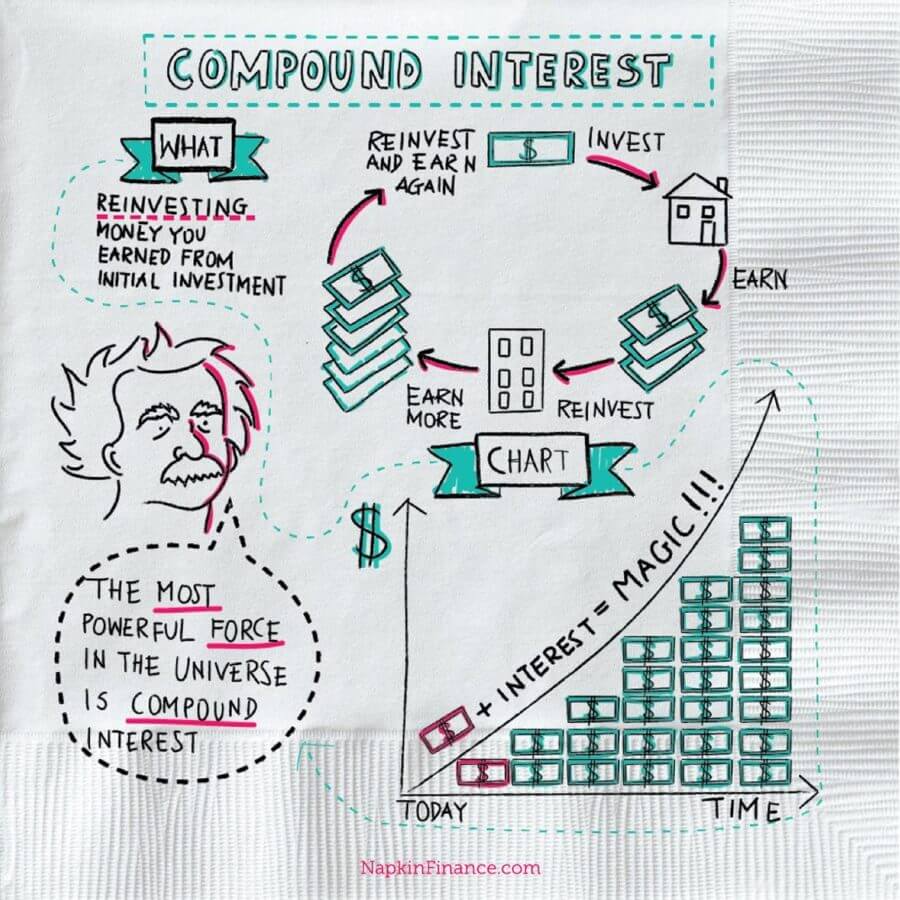 COMPOUND INTEREST
WHAT
REINVESTING
MONEY YOU
EARNED FROM
INITIAL INVESTMENT
REINVEST
AND EARN
AGAIN
$
INVEST
EARN
$
REINVEST
EARN
MORE
$
THE MOST
POWERFUL FORCE
IN THE UNIVERSE
IS COMPOUND
INTEREST
CHART
$
$ + INTEREST = MAGIC!!!
$
$ $
$ $
$ $ $
$ $ $
$ $ $ $
$ $ $ $ $
$ $ $ $ $ $
TODAY
TIME
NapkinFinance.com